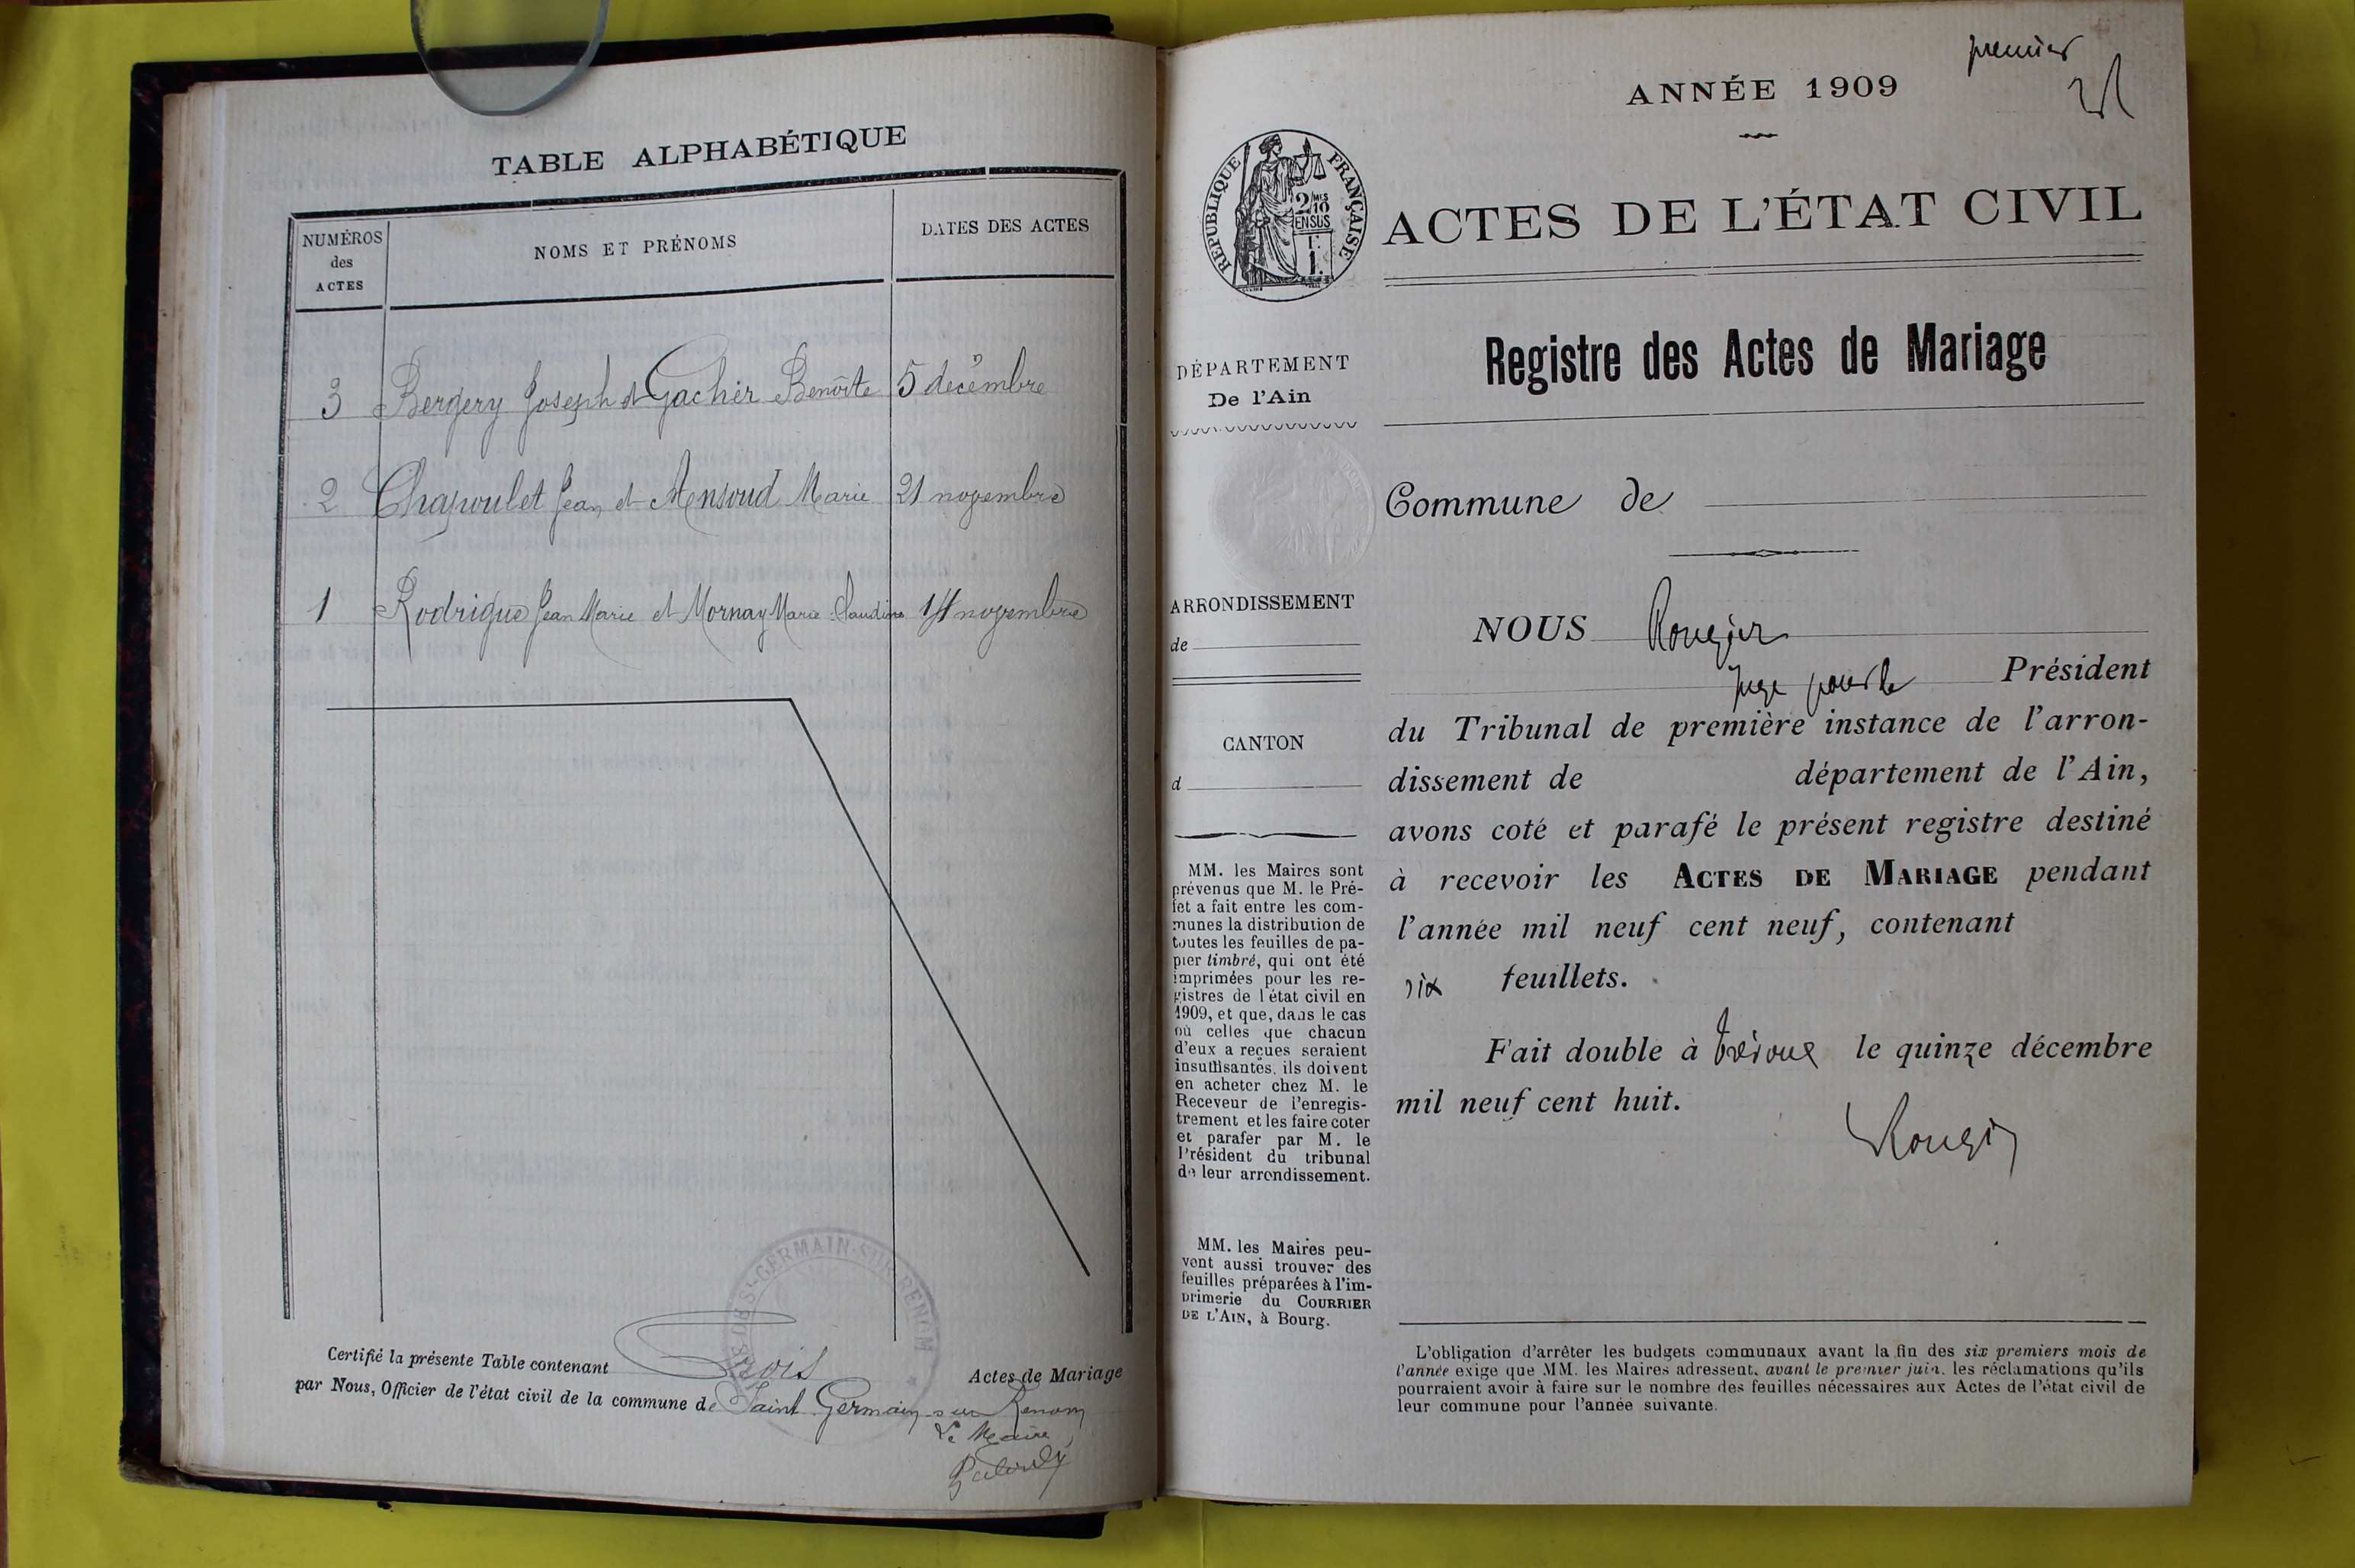 TABLE ALPHABÉTIQUE
NUMÉROS
des
ACTES
NOMS ET PRÉNOMS
DATES DES ACTES
3 Bergery Joseph et Gacher Benoîte 5 décembre
2 Chapoulet Jean et Mensoud Marie 21 novembre
1 Rodrigue Jean Marie et Mornay Marie Claudine 14 novembre
ST-GERMAIN-SUR-RENOM
Certifié la présente Table contenant Trois Actes de Mariage
par Nous, Officier de l'état civil de la commune de Saint Germain sur Renom
Le Maire,
premier
ANNÉE 1909
RÉPUBLIQUE FRANÇAISE
2/10
MES
EN SUS
ACTES DE L'ÉTAT CIVIL
Registre des Actes de Mariage
DÉPARTEMENT
De l'Ain
ARRONDISSEMENT
de
CANTON
d
MM. les Maires sont
prévenus que M. le Pré-
fet a fait entre les com-
munes la distribution de
toutes les feuilles de pa-
pier timbré, qui ont été
imprimées pour les re-
gistres de l'état civil en
1909, et que, dans le cas
où celles que chacun
d'eux a reçues seraient
insuffisantes, ils doivent
en acheter chez M. le
Receveur de l'enregis-
trement et les faire coter
et parafer par M. le
Président du tribunal
de leur arrondissement.
MM. les Maires peu-
vent aussi trouver des
feuilles préparées à l'im-
primerie du COURRIER
DE L'AIN, à Bourg.
Commune de
NOUS Rougier
Juge pour le Président
du Tribunal de première instance de l'arron-
dissement de département de l'Ain,
avons coté et parafé le présent registre destiné
à recevoir les ACTES DE MARIAGE pendant
l'année mil neuf cent neuf, contenant
six feuillets.
Fait double à Trévoux le quinze décembre
mil neuf cent huit.
Rougier
L'obligation d'arrêter les budgets communaux avant la fin des six premiers mois de
l'année exige que MM. les Maires adressent, avant le premier juin, les réclamations qu'ils
pourraient avoir à faire sur le nombre des feuilles nécessaires aux Actes de l'état civil de
leur commune pour l'année suivante.